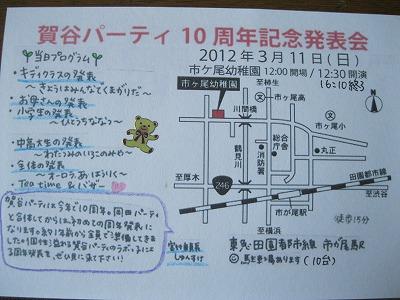 賀谷パーティ 10 周年記念発表会
当日プログラム
・キディクラスの発表
～きょうはみんなでくまがりだ～
・お母さんの発表
・小学生の発表
～ひとうちななつ～
・中高大生の発表
～わたつみのいろこのみや～
・全体の発表
～オーロラ
・Tea time & バザー
賀谷パーティは今年で10周年。岡田パーティ
と合わせてからは初めての周年発表に
なります。約1年前から全員で準備してきま
した。個性溢れる賀谷パーティのラボっ子による
周年発表を、ぜひ見に来て下さい！
しゅんすけ
2012 年 3 月 11 日（日）
市ヶ尾幼稚園 12:00 開場 / 12:30 開演
16:10 終了
至柿生
市ヶ尾幼稚園
川間橋
文
市ヶ尾高
文
市ヶ尾小
鶴見川
消防署
総合庁舎
丸正
至厚木
246
田園都市線
至渋谷
市が尾駅
至横浜
徒歩15分
東急田園都市線 市が尾駅
駐車場あります（10台）